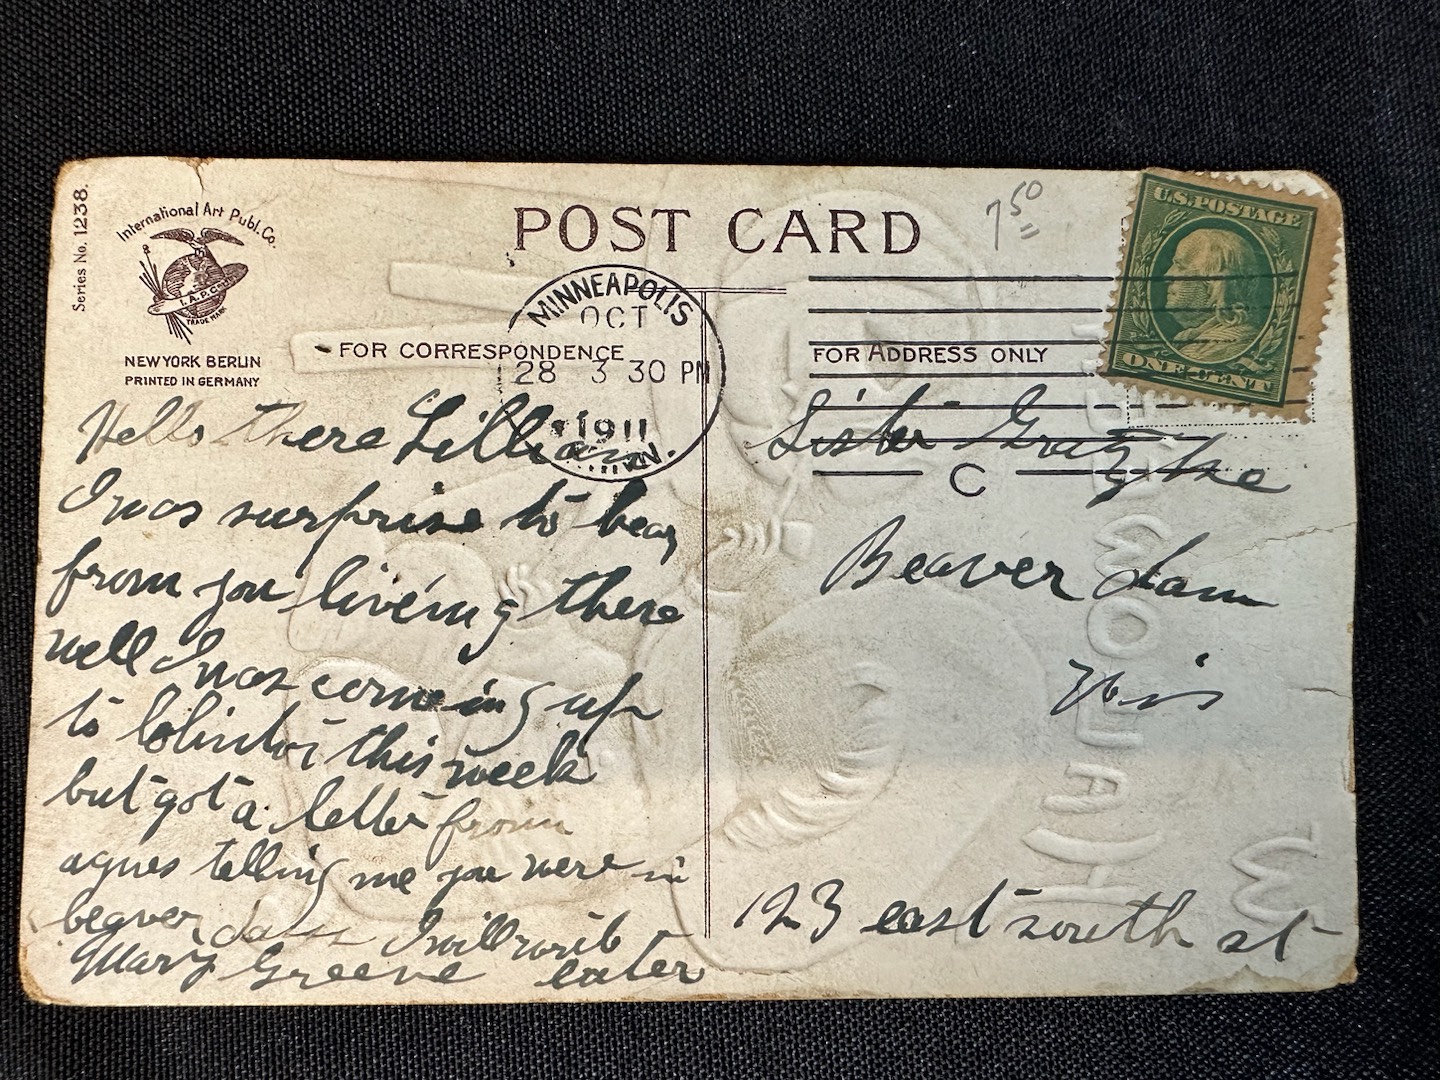 Series No. 1238.
International Art Publ. Co.
I. A. P. Co.
TRADE MARK
NEW YORK BERLIN
PRINTED IN GERMANY
POST CARD
7 50
U.S. POSTAGE
ONE CENT
MINNEAPOLIS
OCT
28 3 30 PM
1911
MINN.
C
FOR CORRESPONDENCE
Hello there Lillian
I was surprise to hear
from you liveing there
well I was coming up
to this week
but got a letter from
agnes telling me you were in
beaver dam I will write
Mary Greeve later
FOR ADDRESS ONLY
Sister
Beaver dam
Wis
123 east south st